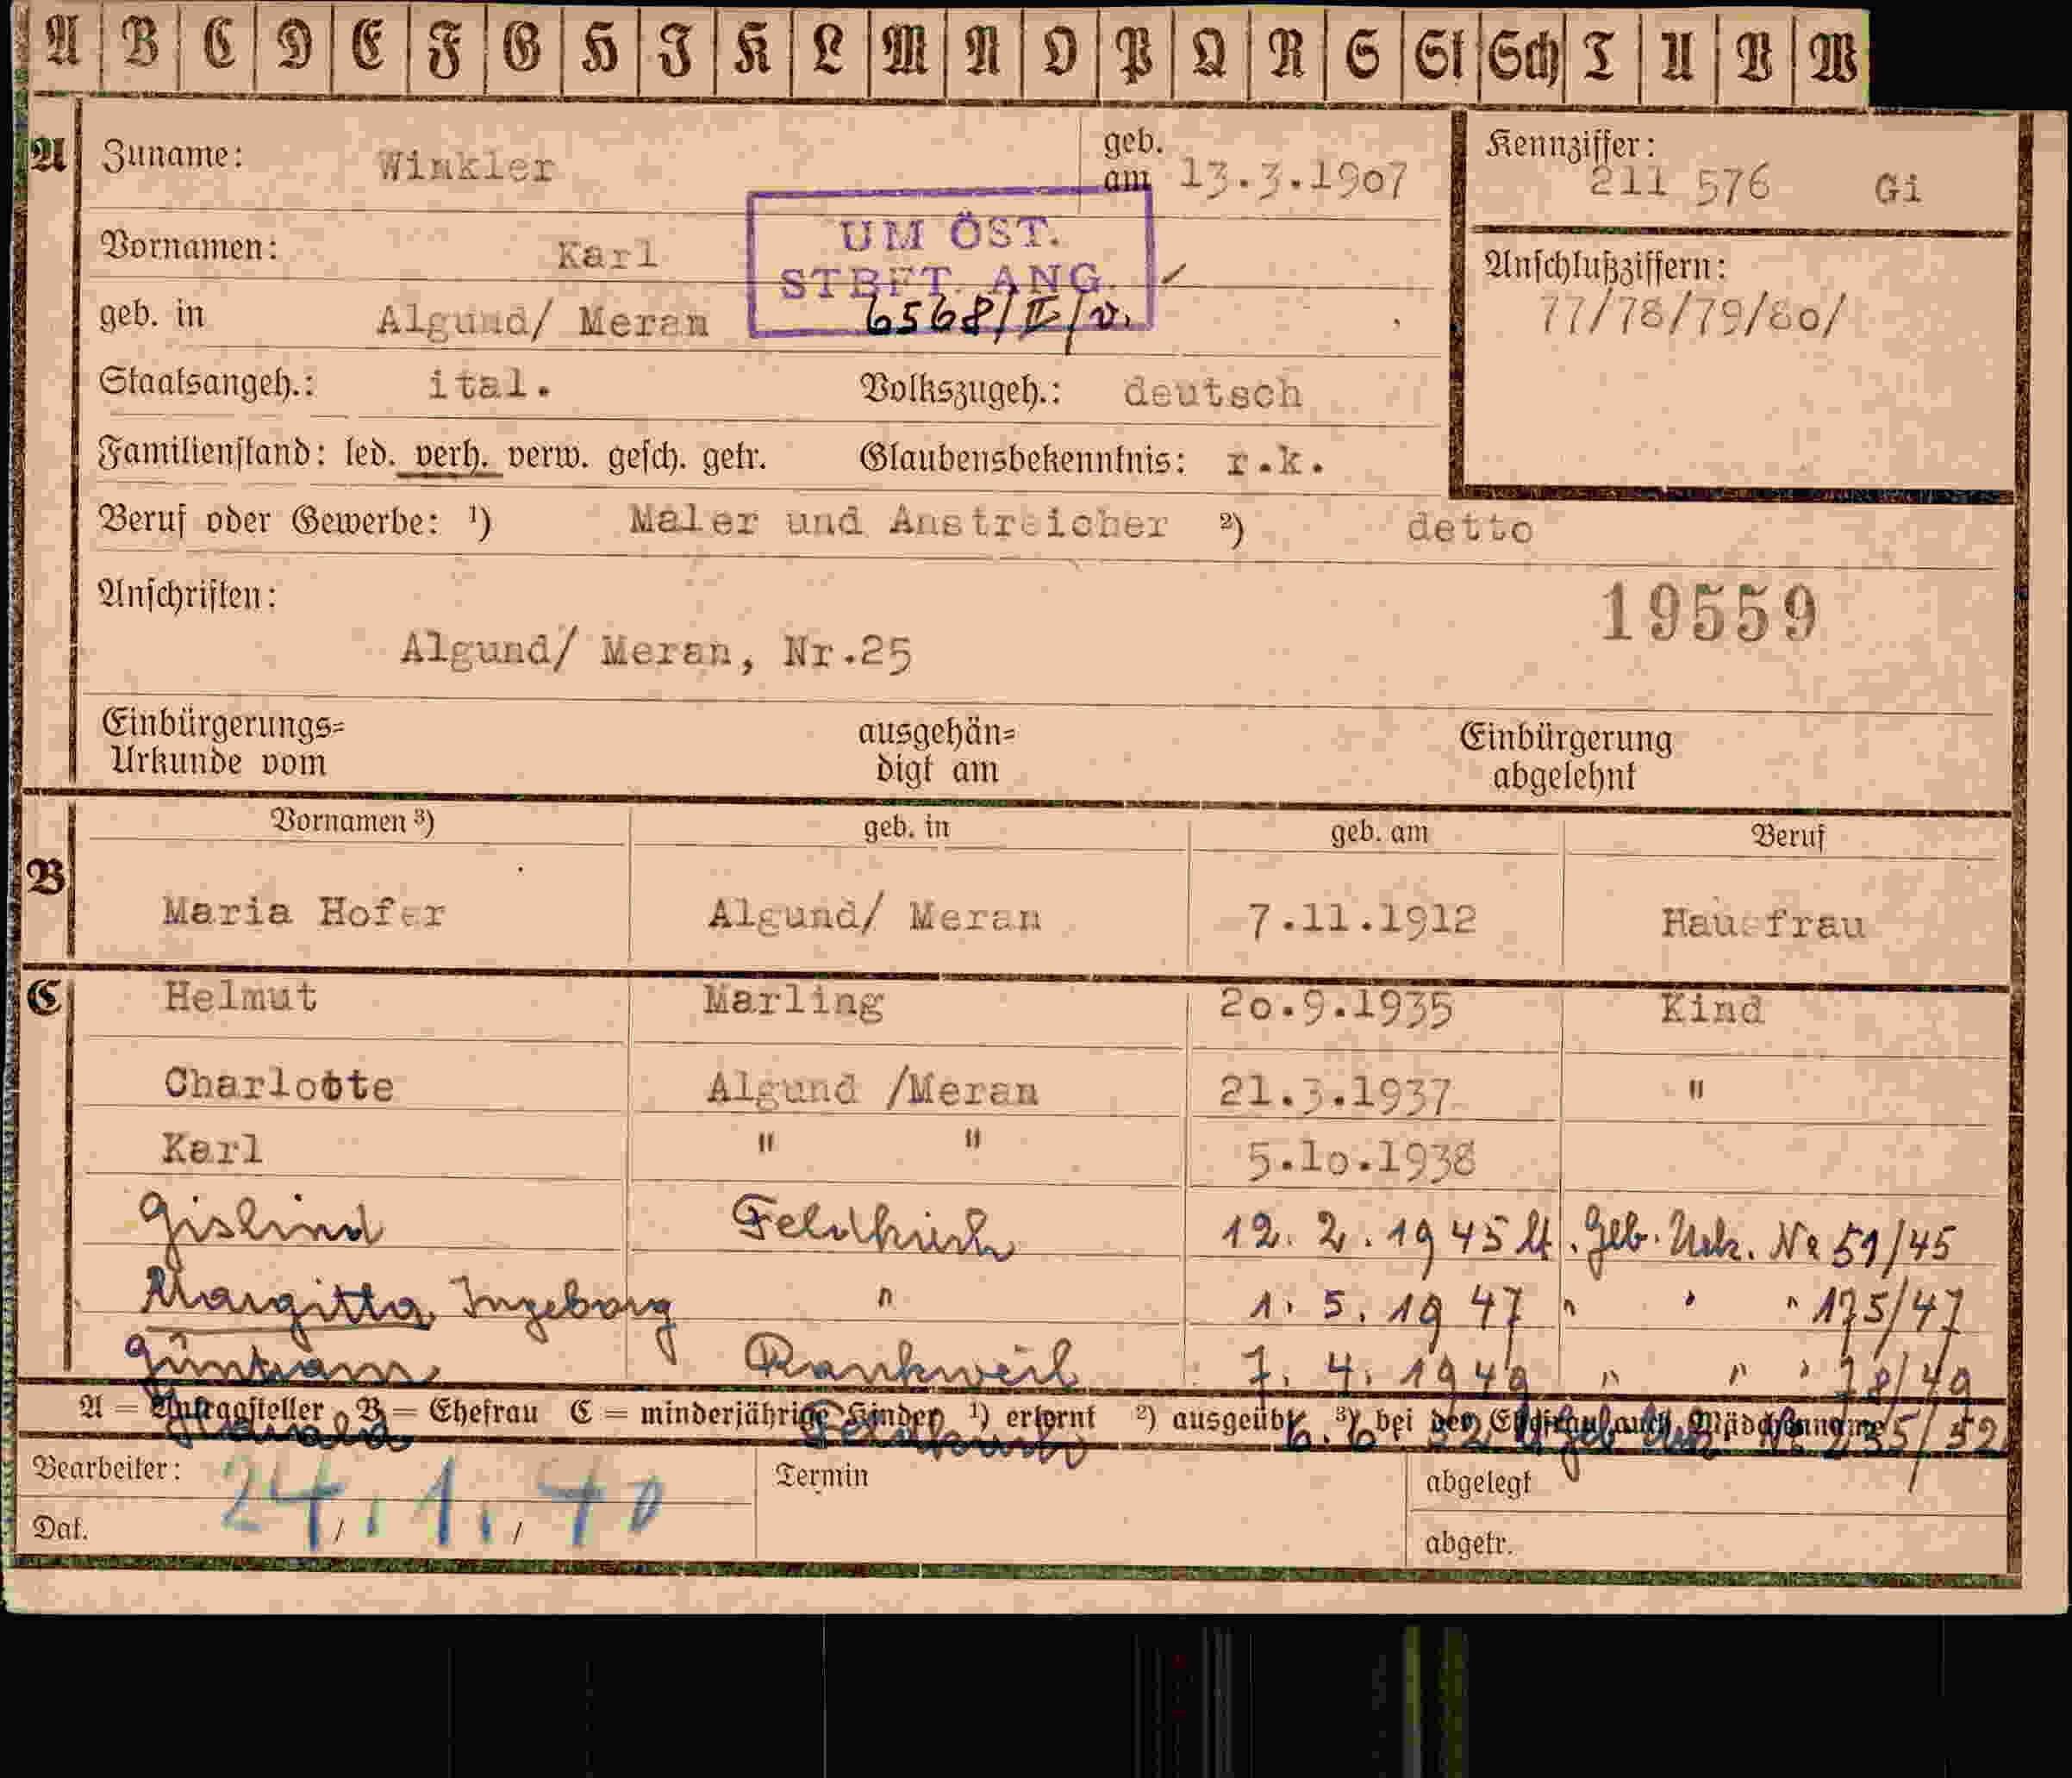 A B C D E F G H I K L M N O P Q R S St Sch T U V W
A Zuname: Winkler geb. am 13.3.1907 Kennziffer: 211 576 Gi
UM ÖST. STBFT. ANG. 6568/II/v.
Vornamen: Karl Anschlußziffern: 77/78/79/80/
geb. in Algund/ Meran
Staatsangeh.: ital. Volkszugeh.: deutsch
Familienstand: led. verh. verw. gesch. getr. Glaubensbekenntnis: r.k.
Beruf oder Gewerbe: ¹) Maler und Anstreicher ²) detto
Anschriften: 19559
Algund/ Meran, Nr.25
Einbürgerungs= Urkunde vom ausgehän= digt am Einbürgerung abgelehnt
Vornamen ³) geb. in geb. am Beruf
B Maria Hofer Algund/ Meran 7.11.1912 Hausfrau
C Helmut Marling 20.9.1935 Kind
Charlotte Algund /Meran 21.3.1937 "
Karl " " 5.10.1938
Gislind Feldkirch 12. 2. 1945 lt. Geb. Urk. Nr 51/45
Margitta Ingeborg " 1. 5. 1947 " " " 175/47
Guntram Rankweil 7. 4. 1949 " " " 78/49
A = Antragsteller B = Ehefrau C = minderjährige Kinder ¹) erlernt ²) ausgeübt ³) bei der Ehefrau auch Mädchenname
Feldkirch 6. 6. 52
Bearbeiter: 24.1.40 Termin abgelegt
Dat. abgetr.